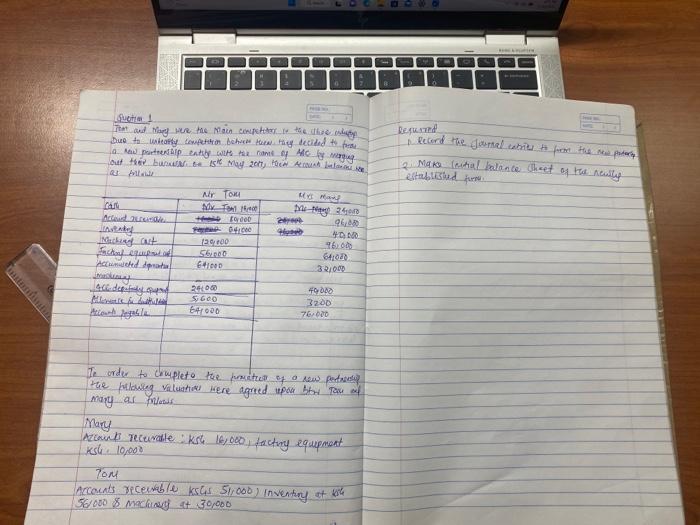 Question 1
Tom and Mary were the Main competitors in the shoe industry
Due to unhealthy competition between them they decided to form
a new partnership entity with the name of ABC by merging
out their business. on 15th May 2017, their account balances were
as follows
Mr Tom Mrs Mary
Cash 16,000 24,000
Account receivable 80,000 96,000
Inventory 64,000 40,000
Machinery cost 120,000 96,000
Factory equipment cost 56,000 64,000
Accumulated depreciation 64,000 32,000
machinery
Acc depreciatn equipmt 24,000 40,000
Allowance for doubtful debts 5,600 3200
Account payable 64,000 76,000
In order to complete the formation of a new partnership
the following valuations were agreed upon btw Tom and
Mary as follows
Mary
Accounts receivable : ksh 16,000, factory equipment
Ksh. 10,000
Tom
Accounts receivable kshs 51,000, Inventory at ksh
56,000 & Machinery at 30,000
Required
1. Record the journal entries to form the new partnership
2. Make initial balance sheet of the newly
established firm.